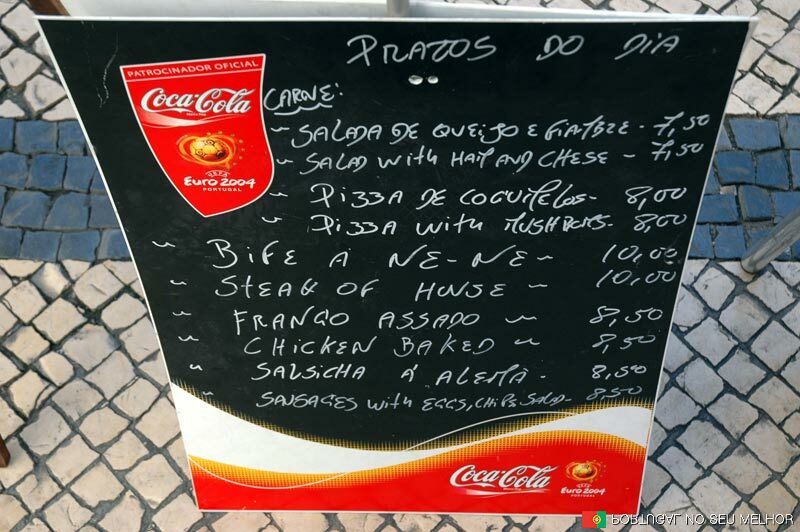 PRATOS DO DIA
PATROCINADOR OFICIAL
Coca-Cola
UEFA
Euro 2004
PORTUGAL
CARNE:
~ SALADA DE QUEIJO E FIAMBRE - 7,50
~ SALAD WITH HAM AND CHESE - 7,50
~ PIZZA DE COGUMELOS - 8,00
~ PIZZA WITH MUSHROMS - 8,00
~ BIFE À NE-NE ~ 10,00
~ STEAK OF HOUSE ~ 10,00
~ FRANGO ASSADO ~ 8,50
~ CHICKEN BAKED ~ 8,50
~ SALSICHA À ALEMÃ - 8,50
~ SAUSAGES WITH EGGS, CHIPS, SALAD - 8,50
Coca-Cola
Euro 2004
PORTUGAL
PORTUGAL NO SEU MELHOR